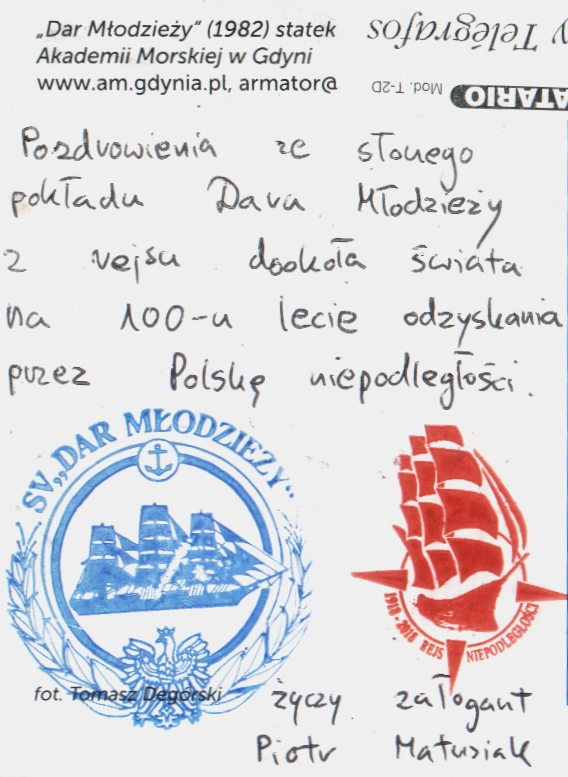 „Dar Młodzieży” (1982) statek
Akademii Morskiej w Gdyni
www.am.gdynia.pl, armator@
y Telégrafos
Mod. T-2D
ATARIO
Pozdrowienia ze słonego
pokładu Dara Młodzieży
z rejsu dookoła świata
na 100-u lecie odzyskania
przez Polskę niepodległości.
SV „DAR MŁODZIEŻY”
1918-2018 REJS NIEPODLEGŁOŚCI
fot. Tomasz Degórski
życzy załogant
Piotr Matusiak